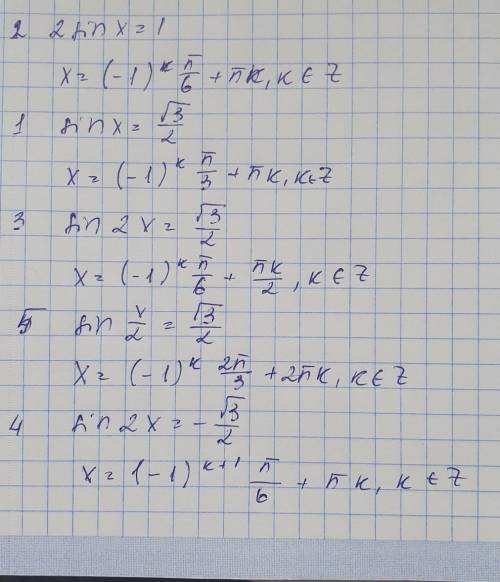 2 2 sin x = 1
x = (-1)^k π/6 + πk, k ∈ Z
1 sin x = √3/2
x = (-1)^k π/3 + πk, k ∈ Z
3 sin 2x = √3/2
x = (-1)^k π/6 + πk/2, k ∈ Z
5 sin x/2 = √3/2
x = (-1)^k 2π/3 + 2πk, k ∈ Z
4 sin 2x = -√3/2
x = (-1)^k+1 π/6 + πk, k ∈ Z